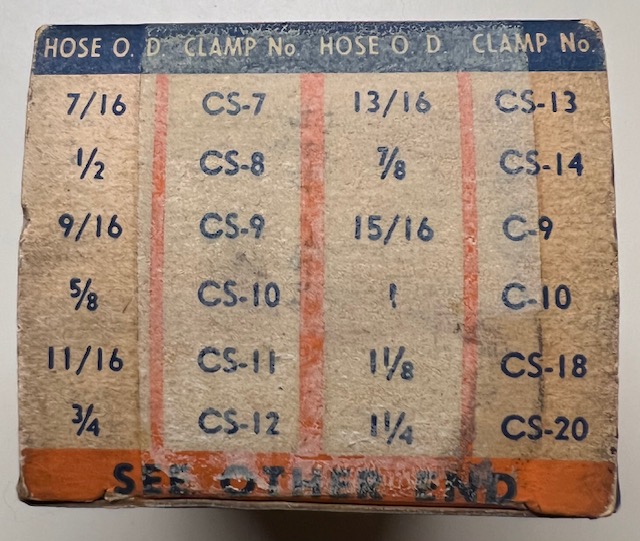 HOSE O. D. CLAMP No. HOSE O D. CLAMP No.
7/16 CS-7 13/16 CS-13
1/2 CS-8 7/8 CS-14
9/16 CS-9 15/16 C-9
5/8 CS-10 1 C-10
11/16 CS-11 1 1/8 CS-18
3/4 CS-12 1 1/4 CS-20
SEE OTHER END